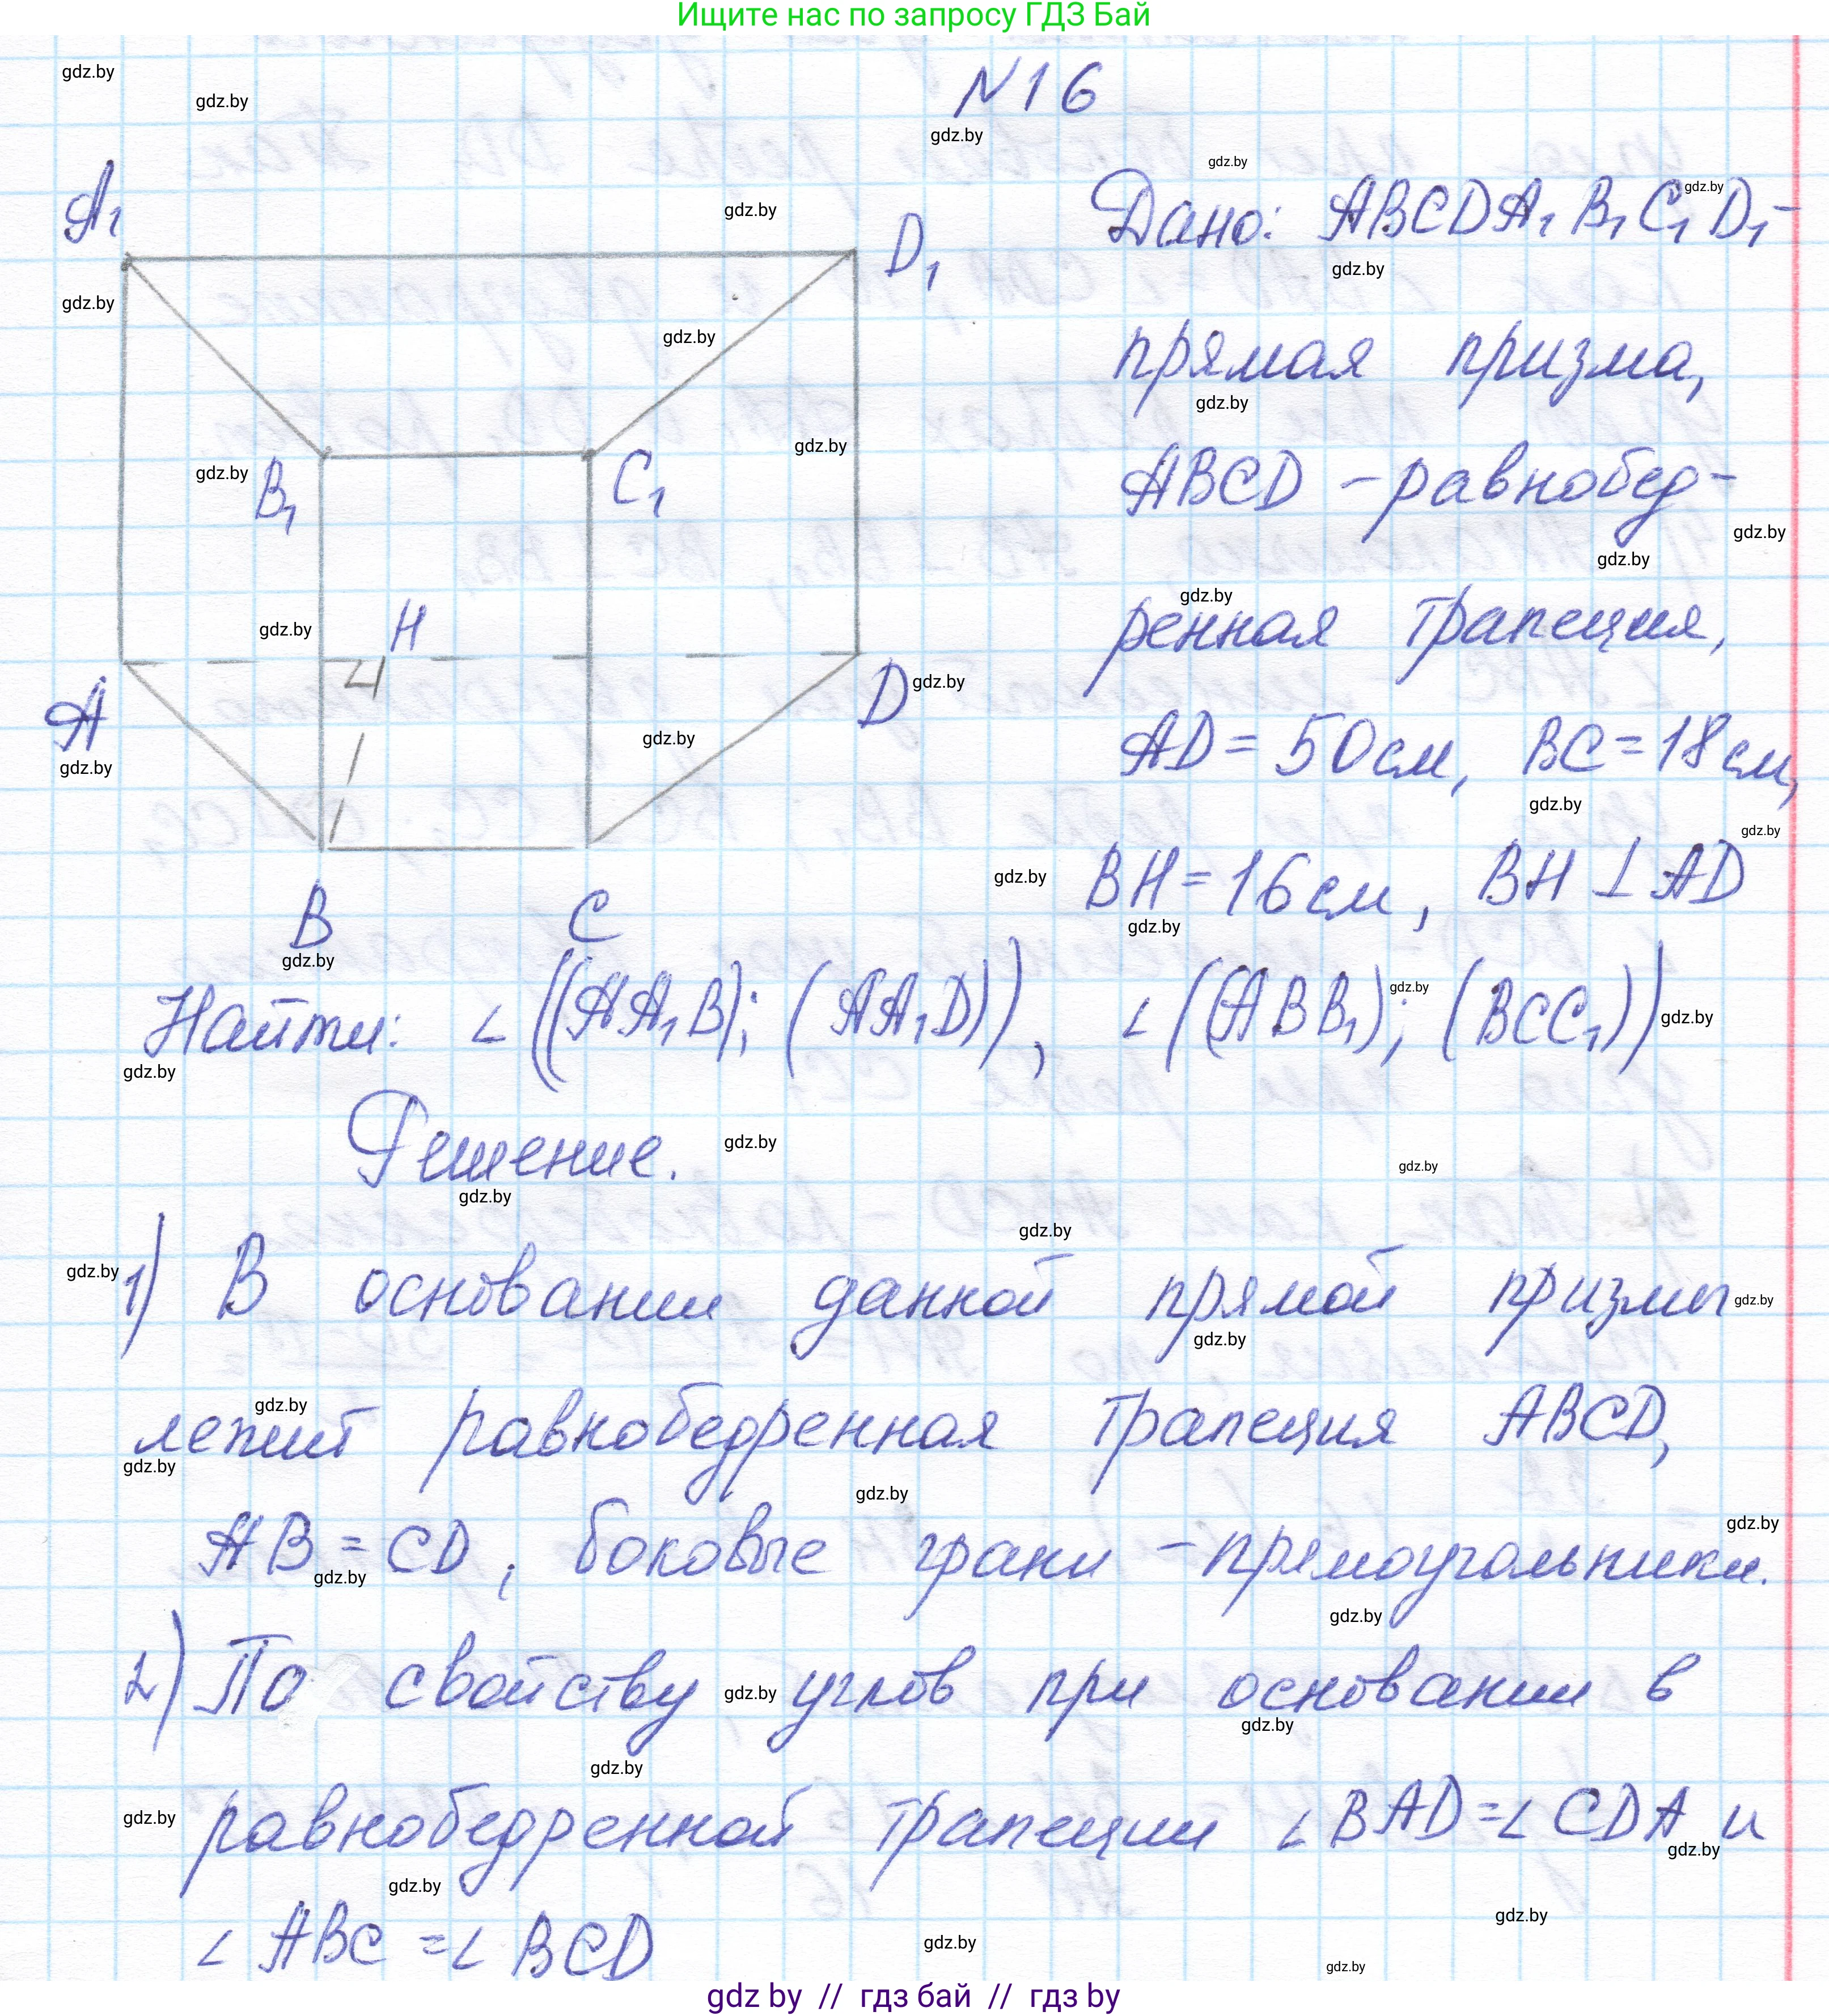 Ищите нас по запросу ГДЗ Бай
N16
Дано: ABCDA₁B₁C₁D₁-
прямая призма,
ABCD - равнобед-
ренная трапеция,
AD = 50 см, BC = 18 см,
BH = 16 см, BH ⊥ AD
A₁
D₁
B₁
C₁
H
A
D
B
C
Найти: ∠((AA₁B); (AA₁D)), ∠((ABB₁); (BCC₁))
Решение.
1) В основании данной прямой призмы
лежит равнобедренная трапеция ABCD,
AB = CD, боковые грани - прямоугольники.
2) По свойству углов при основании в
равнобедренной трапеции ∠BAD = ∠CDA и
∠ABC = ∠BCD
gdz.by
gdz by // гдз бай // гдз by